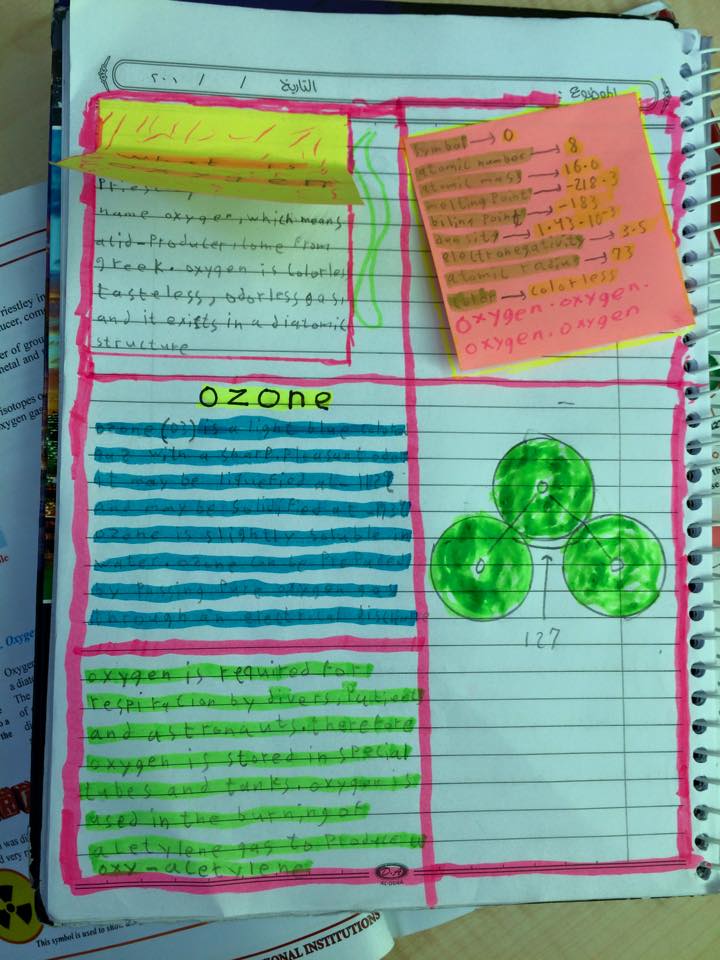 الموضوع :
التاريخ / / ٢٠١
what is
oxygen
Priestley
name oxygen, which means
acid-Producer, come from
greek. oxygen is colorles
tasteless, odorless gas,
and it exists in a diatomic
structure
symbol → O
atomic number → 8
atomic mass → 16.0
melting Point → -218.3
biling Point → -183
density → 1.43.10-3
electronegativity → 3.5
atomic radius → 73
color → colorless
oxygen. oxygen.
oxygen. oxygen
ozone
ozone (O3) is a light blue
gas with a sharp Pleasant
it may be liquefied at -112
and may be solidified at
ozone is slightly soluble in
water ozone can be Produced
by Passing Pure oxygen gas
through an electrical discharge
O
O O
127
oxygen is required for
respiracion by divers, Patients
and astronauts. therefore
oxygen is stored in special
tubes and tanks. oxygen is
used in the burning of
acetylene gas to Produce
oxy-acetylene
riestley in
ucer, com
er of grou
netal and
isotopes o
xygen gas
Oxyge
Oxygen
a diato
The
of
This symbol is used to show
ONAL INSTITUTIONS